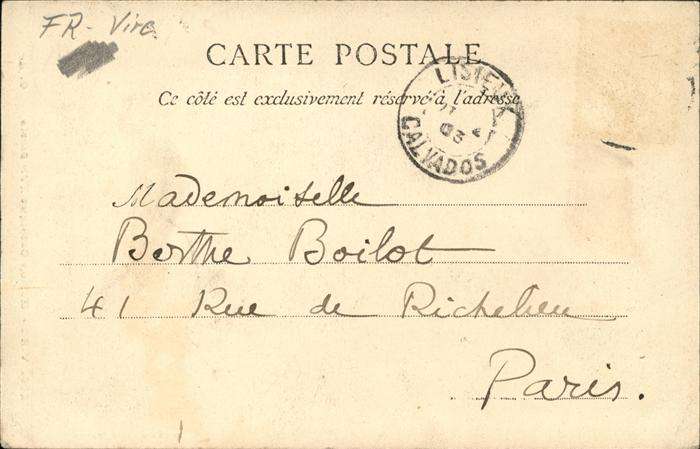 FR - Vire
CARTE POSTALE
Ce côté est exclusivement réservé à l'adresse
LISIEUX
03
CALVADOS
Mademoiselle
Berthe Boilot
41 Rue de Richelieu
Paris.